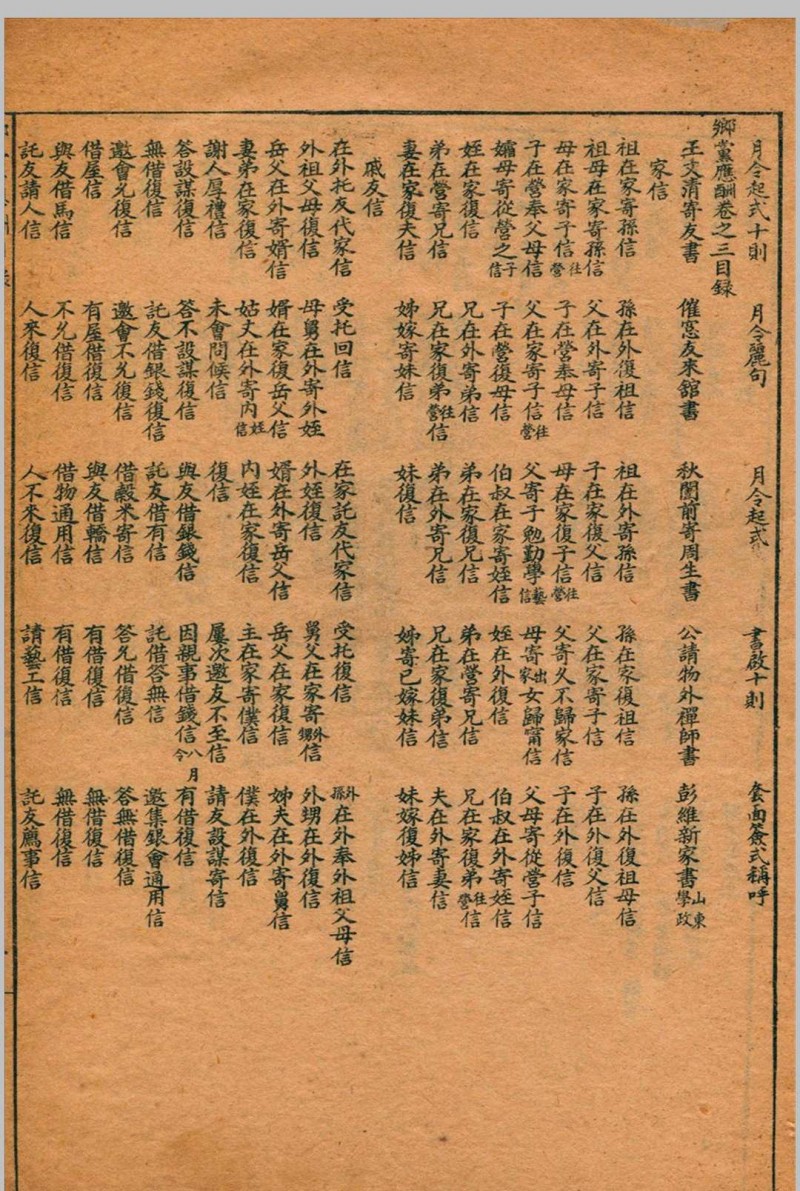 鄉黨應酬卷之三目錄
月令起式十則　月令麗句　月令起式　書啟十則　套面簽式稱呼
王文清寄友書　催窓友來舘書　秋闈前寄周生書　公請物外禪師書　彭維新家書山東學政
家信
祖在家寄孫信　孫在外復祖信　祖在外寄孫信　孫在家復祖信　孫在外復祖母信
祖母在家寄孫信　父在外寄子信　子在家復父信　父在家寄子信　子在外復父信
母在家寄子信往營　子在營奉母信　母在家復子信往營　父寄久不歸家信　子在外復信
子在營奉父母信　父在家寄子信往營　父寄子勉勤學藝信　母寄出家女歸甯信　父母寄從營子信
孀母寄從營之子信　子在營復母信　伯叔在家寄姪信　姪在外復信　伯叔在外寄姪信
姪在家復信　兄在外寄弟信　弟在家復兄信　弟在營寄兄信　兄在家復弟往營信
弟在營寄兄信　兄在家復弟往營信　弟在外寄兄信　兄在家復弟信　夫在外寄妻信
妻在家復夫信　姊嫁寄妹信　妹復信　姊寄已嫁妹信　妹嫁復姊信
戚友信
在外托友代家信　受托回信　在家託友代家信　受托復信　外孫在外奉外祖父母信
外祖父母復信　母舅在外寄外姪　外姪復信　舅父在家寄外甥信　外甥在外復信
岳父在外寄婿信　婿在家復岳父信　婿在外寄岳父信　岳父在家復信　姊夫在外寄舅信
妻弟在家復信　姑丈在外寄內姪信　內姪在家復信　主在家寄僕信　僕在外復信
謝人厚禮信　未會問候信　復信　屢次邀友不至信　請友設謀寄信
答設謀復信　答不設謀復信　與友借銀錢信　因親事借錢信八月令　有借復信
無借復信　託友借銀錢復信　託友借有信　託借答無信　邀集銀會通用信
邀會兌復信　邀會不兌復信　借穀米寄信　答兌借復信　答無借復信
借屋信　有屋借復信　與友借轎信　有借復信　無借復信
與友借馬信　不兌借復信　借物通用信　有借復信　無借復信
託友請人信　人來復信　人不來復信　請藝工信　託友薦事信